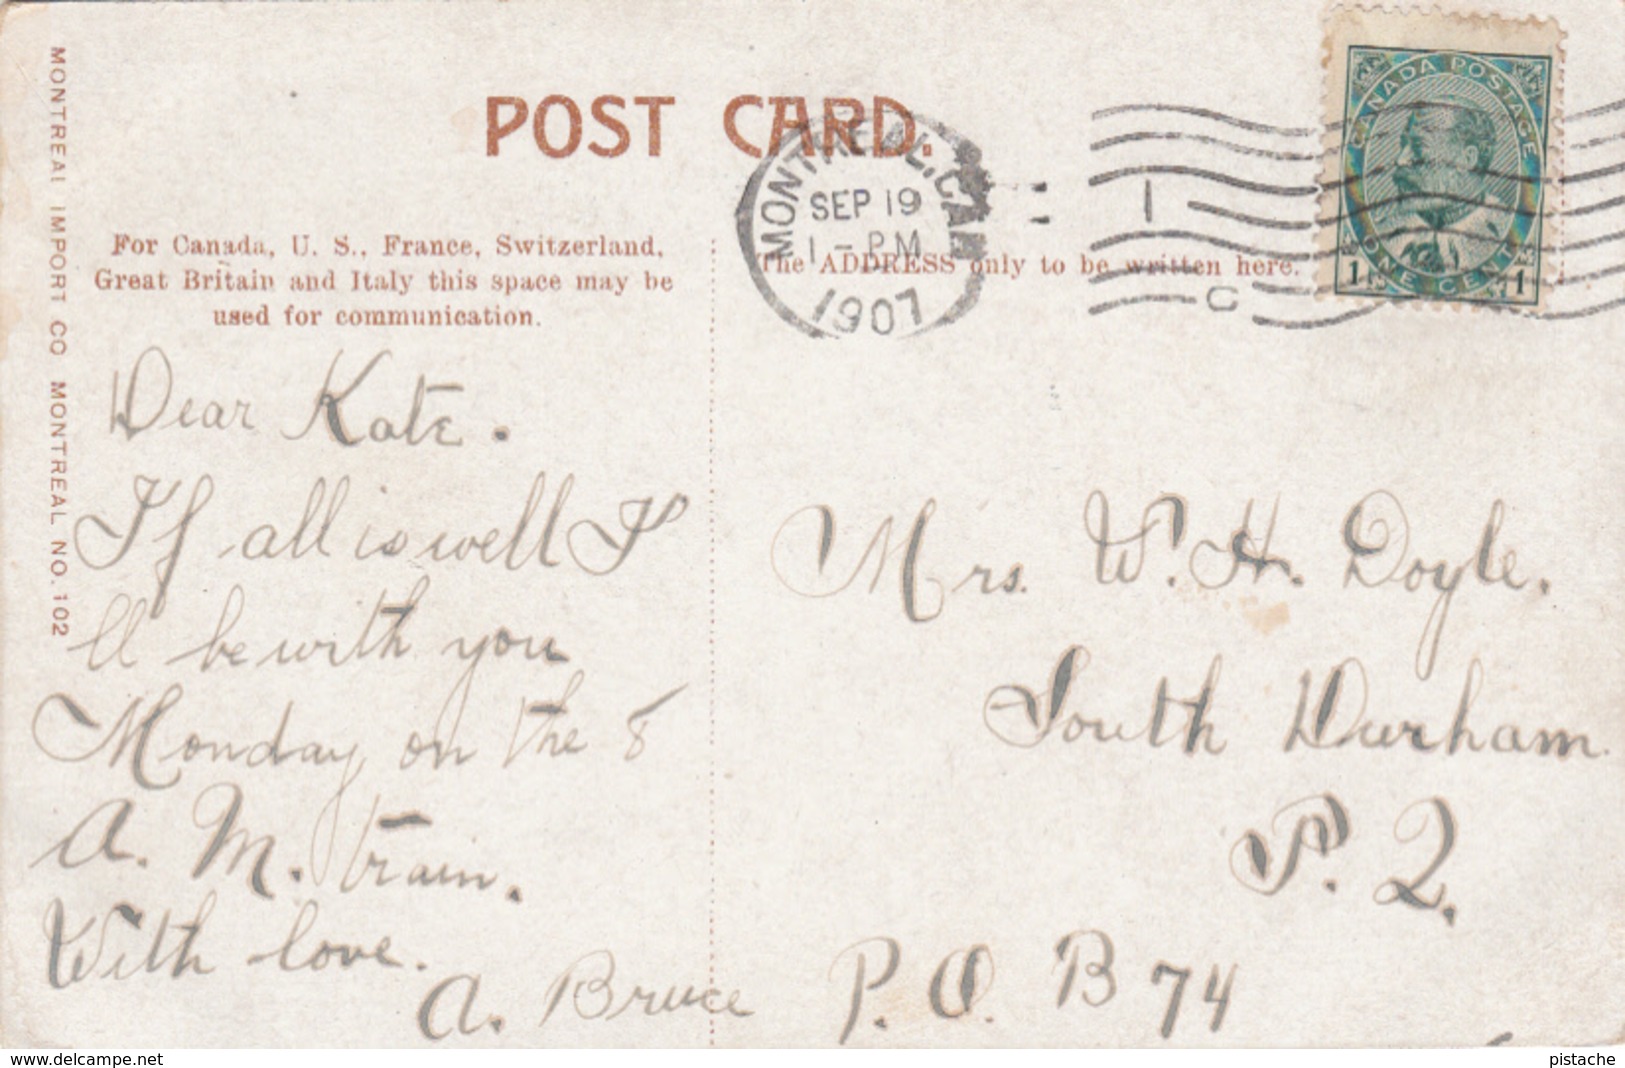 POST CARD.
MONTREAL, CAN
SEP 19
1 - PM
1907
1
C
CANADA POSTAGE
1 ONE CENT 1
MONTREAL IMPORT CO MONTREAL NO. 102
For Canada, U. S., France, Switzerland,
Great Britain and Italy this space may be
used for communication.
The ADDRESS only to be written here.
Dear Kate.
If all is well I
ll be with you
Monday on the 8
A. M. train.
With love.
A. Bruce
Mrs. W. H. Doyle.
South Durham.
P. Q.
P. O. B 74
www.delcampe.net
pistache